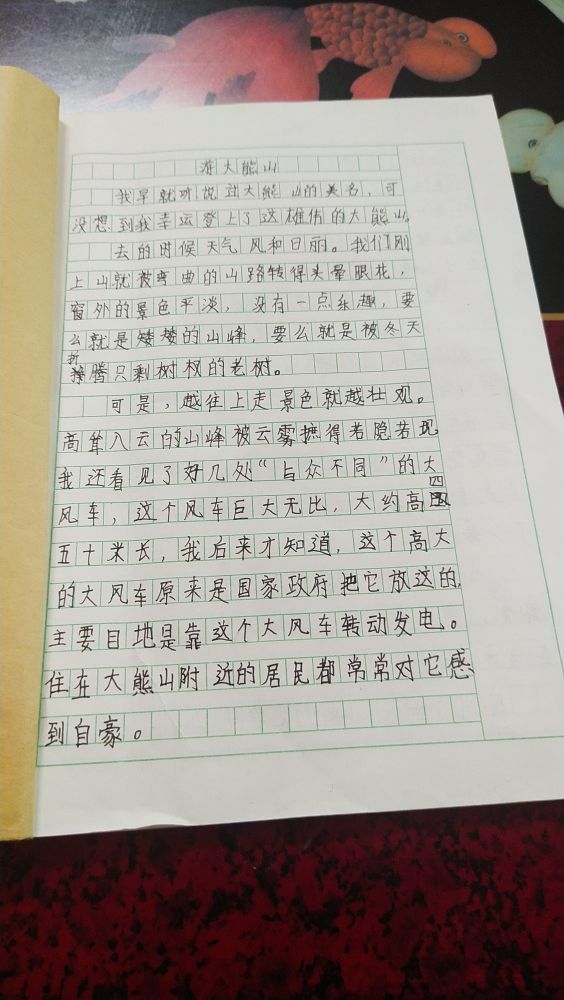 游大熊山
我早就听说过大熊山的美名，可
没想到我幸运登上了这雄伟的大熊山。
去的时候天气风和日丽。我们刚
上山就被弯曲的山路转得头晕眼花，
窗外的景色平淡，没有一点乐趣，要
么就是矮矮的山峰，要么就是被冬天
折腾只剩树杈的老树。
可是，越往上走景色就越壮观。
高耸入云的山峰被云雾摭得若隐若现
我还看见了好几处“与众不同”的大
风车，这个风车巨大无比，大约高四
五十米长，我后来才知道，这个高大
的大风车原来是国家政府把它放这的，
主要目地是靠这个大风车转动发电。
住在大熊山附近的居民都常常对它感
到自豪。